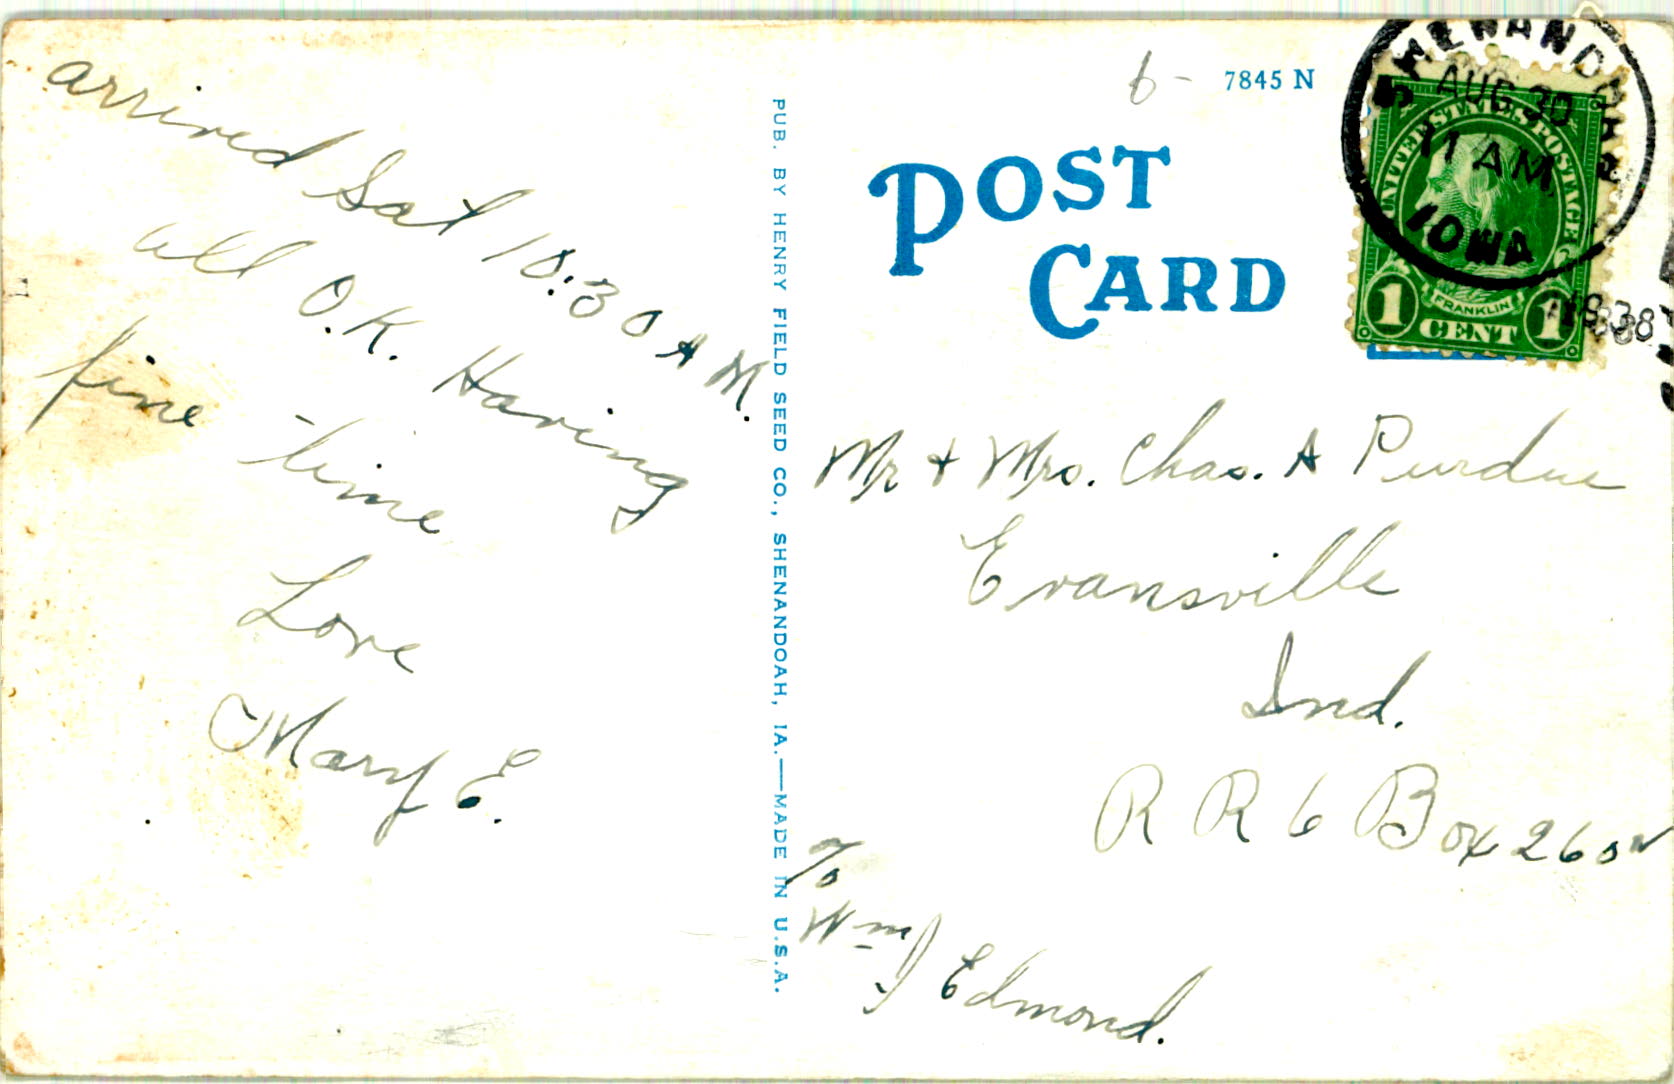 arrived Sat 10:30 A M.
all O.K. Having
fine time
Love
Mary E.
PUB. BY HENRY FIELD SEED CO., SHENANDOAH, IA.—MADE IN U.S.A.
6-
7845 N
POST
CARD
SHENANDOAH
AUG 30
11 AM
IOWA
UNITED STATES POSTAGE
FRANKLIN
1 CENT 1
Mr + Mrs. Chas. A Purdue
Evansville
Ind.
R R 6 Box 260
To
Wm J Edmond.